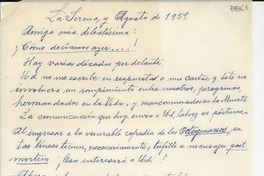 La Serena, y Agosto de 1951
Amiga mía dilectísima:
¡Cómo decíamos ayer....!
Hay varias décadas por delante.
Ud. no me escribe en respuesta a mis cartas, y esto no
involucra un rompimiento entre nosotros, peregrinos,
hermanados en la Vida, y mancomunados en la Muerte
La comunicación que hoy envío a Ud., talvez es póstuma.
Al ingresar a la venerable cofradía de los Octogenarios,
las líneas tienen, necesariamente, tufillo a mensaje post
mortem. Eso enterrará a Ud.